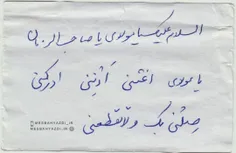 السلام علیک یا مولای یا صاحب الزمان
یا مولای اغثنی أدْنِنی ادرکنی
صِلْنی بک و لا تقطعنی